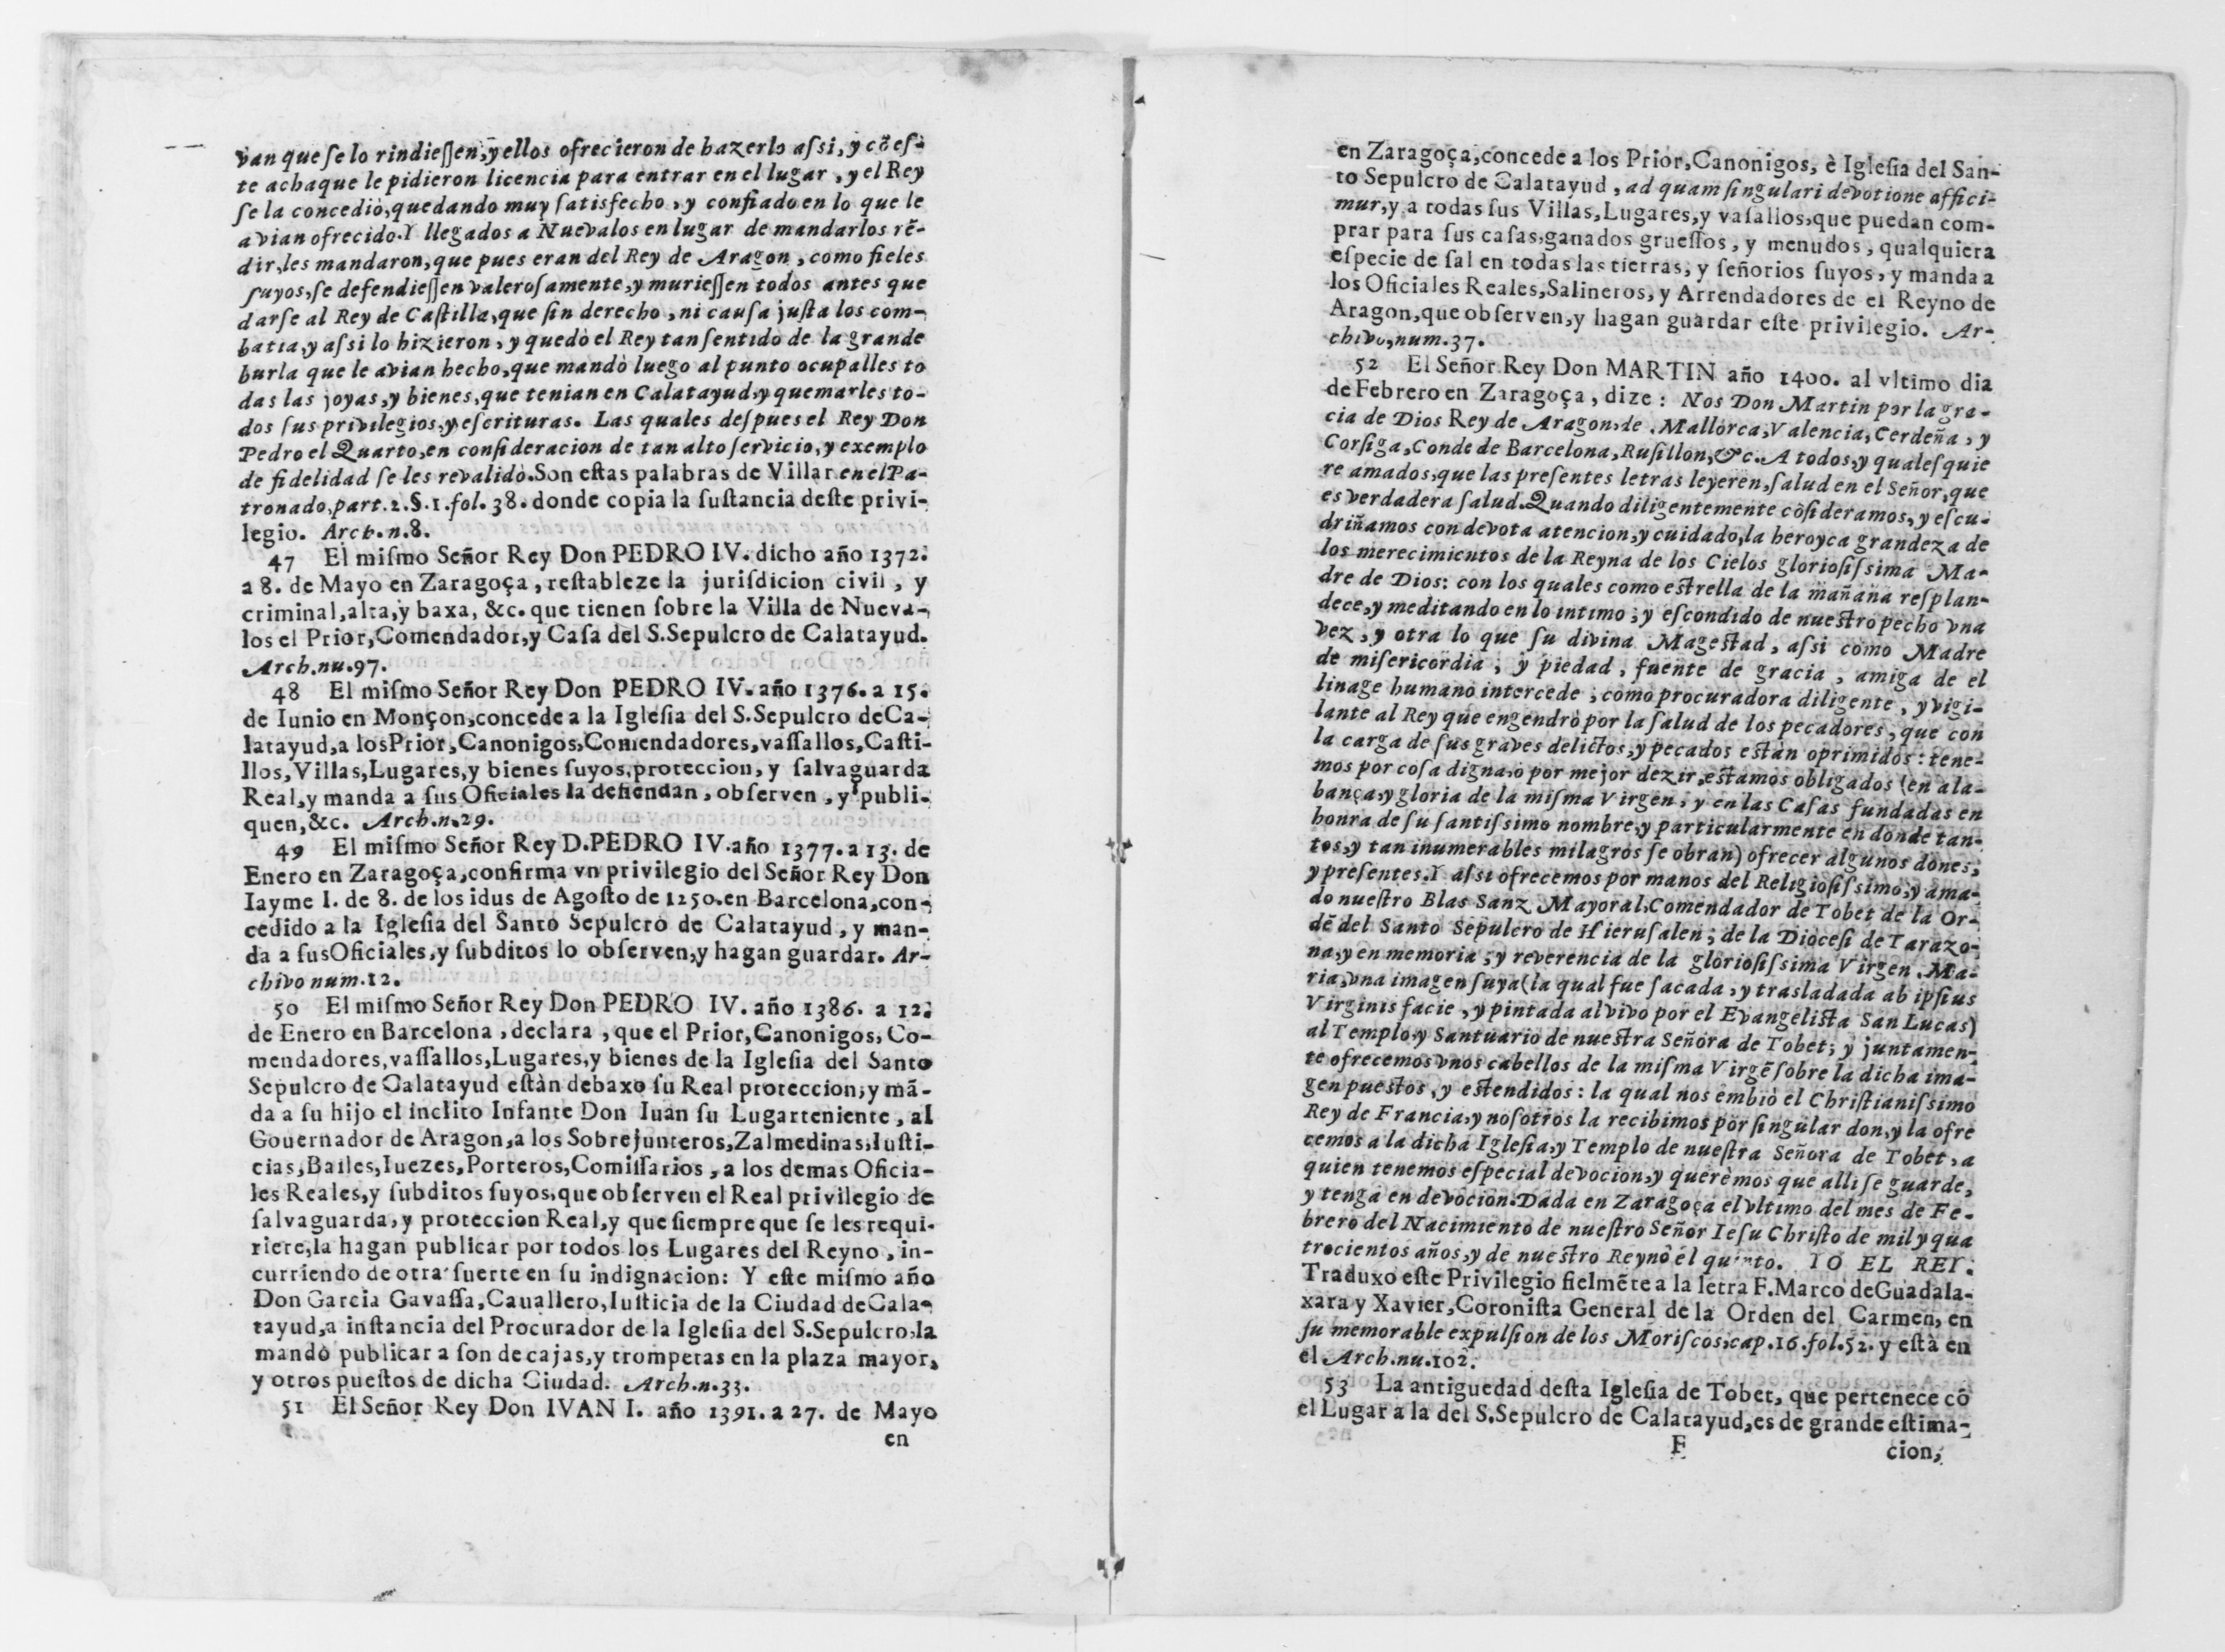 van que se lo rindiessen, y ellos ofrecieron de hazerlo assi, y cõ es-
te achaque le pidieron licencia para entrar en el lugar, y el Rey
se la concediò, quedando muy satisfecho, y confiado en lo que le
avian ofrecido. Y llegados a Nuevalos en lugar de mandarlos rẽ-
dir, les mandaron, que pues eran del Rey de Aragon, como fieles
suyos, se defendiessen valerosamente, y muriessen todos antes que
darse al Rey de Castilla, que sin derecho, ni causa justa los com-
batia, y assi lo hizieron, y quedò el Rey tan sentido de la grande
burla que le avian hecho, que mandò luego al punto ocupalles to
das las joyas, y bienes, que tenian en Calatayud, y quemarles to-
dos sus privilegios, y escrituras. Las quales despues el Rey Don
Pedro el Quarto, en consideracion de tan alto servicio, y exemplo
de fidelidad se les revalidò. Son estas palabras de Villar en el Pa-
tronado, part. 2. §. 1. fol. 38. donde copia la sustancia deste privi-
legio. Arch. n. 8.
47 El mismo Señor Rey Don PEDRO IV. dicho año 1372.
a 8. de Mayo en Zaragoça, restableze la jurisdicion civil, y
criminal, alta, y baxa, &c. que tienen sobre la Villa de Nueva-
los el Prior, Comendador, y Casa del S. Sepulcro de Calatayud.
Arch. nu. 97.
48 El mismo Señor Rey Don PEDRO IV. año 1376. a 15.
de Iunio en Monçon, concede a la Iglesia del S. Sepulcro de Ca-
latayud, a los Prior, Canonigos, Comendadores, vassallos, Casti-
llos, Villas, Lugares, y bienes suyos, proteccion, y salvaguarda
Real, y manda a sus Oficiales la defiendan, observen, y publi-
quen, &c. Arch. n. 29.
49 El mismo Señor Rey D. PEDRO IV. año 1377. a 13. de
Enero en Zaragoça, confirma vn privilegio del Señor Rey Don
Iayme I. de 8. de los idus de Agosto de 1250. en Barcelona, con-
cedido a la Iglesia del Santo Sepulcro de Calatayud, y man-
da a sus Oficiales, y subditos lo observen, y hagan guardar. Ar-
chivo num. 12.
50 El mismo Señor Rey Don PEDRO IV. año 1386. a 12.
de Enero en Barcelona, declara, que el Prior, Canonigos, Co-
mendadores, vassallos, Lugares, y bienes de la Iglesia del Santo
Sepulcro de Calatayud estàn debaxo su Real proteccion, y mã-
da a su hijo el inclito Infante Don Iuan su Lugarteniente, al
Gouernador de Aragon, a los Sobrejunteros, Zalmedinas, Iusti-
cias, Bailes, Iuezes, Porteros, Comissarios, a los demas Oficia-
les Reales, y subditos suyos, que observen el Real privilegio de
salvaguarda, y proteccion Real, y que siempre que se les requi-
riere, la hagan publicar por todos los Lugares del Reyno, in-
curriendo de otra suerte en su indignacion: Y este mismo año
Don Garcia Gavassa, Cauallero, Iusticia de la Ciudad de Cala-
tayud, a instancia del Procurador de la Iglesia del S. Sepulcro, la
mandò publicar a son de cajas, y trompetas en la plaza mayor,
y otros puestos de dicha Ciudad. Arch. n. 33.
51 El Señor Rey Don IVAN I. año 1391. a 27. de Mayo
en
en Zaragoça, concede a los Prior, Canonigos, è Iglesia del San-
to Sepulcro de Calatayud, ad quam singulari devotione affici-
mur, y a todas sus Villas, Lugares, y vasallos, que puedan com-
prar para sus casas, ganados gruessos, y menudos, qualquiera
especie de sal en todas las tierras, y señorios suyos, y manda a
los Oficiales Reales, Salineros, y Arrendadores de el Reyno de
Aragon, que observen, y hagan guardar este privilegio. Ar-
chivo, num. 37.
52 El Señor Rey Don MARTIN año 1400. al vltimo dia
de Febrero en Zaragoça, dize: Nos Don Martin por la gra-
cia de Dios Rey de Aragon, de Mallorca, Valencia, Cerdeña, y
Corsiga, Conde de Barcelona, Rusillon, &c. A todos, y qualesquie
re amados, que las presentes letras leyeren, salud en el Señor, que
es verdadera salud. Quando diligentemente cõsideramos, y escu-
driñamos con devota atencion, y cuidado, la heroyca grandeza de
los merecimientos de la Reyna de los Cielos gloriosissima Ma-
dre de Dios: con los quales como estrella de la mañana resplan-
dece, y meditando en lo intimo, y escondido de nuestro pecho vna
vez, y otra lo que su divina Magestad, assi como Madre
de misericordia, y piedad, fuente de gracia, amiga de el
linage humano intercede, como procuradora diligente, y vigi-
lante al Rey que engendrò por la salud de los pecadores, que con
la carga de sus graves delictos, y pecados estàn oprimidos: tene-
mos por cosa digna, ò por mejor dezir, estamos obligados (en ala-
bança, y gloria de la misma Virgen, y en las Casas fundadas en
honra de su santissimo nombre, y particularmente en donde tan-
tos, y tan inumerables milagros se obran) ofrecer algunos dones,
y presentes. Y assi ofrecemos por manos del Religiosissimo, y ama-
do nuestro Blas Sanz Mayoral, Comendador de Tobet de la Or-
dẽ del Santo Sepulcro de Hierusalen, de la Diocesi de Tarazo-
na, y en memoria, y reverencia de la gloriosissima Virgen Ma-
ria, vna imagen suya (la qual fue sacada, y trasladada ab ipsius
Virginis facie, y pintada al vivo por el Evangelista San Lucas)
al Templo, y Santuario de nuestra Señora de Tobet; y juntamen-
te ofrecemos vnos cabellos de la misma Virgẽ sobre la dicha ima-
gen puestos, y estendidos: la qual nos embiò el Christianissimo
Rey de Francia, y nosotros la recibimos por singular don, y la ofre
cemos a la dicha Iglesia, y Templo de nuestra Señora de Tobet, a
quien tenemos especial devocion, y querèmos que alli se guarde,
y tenga en devocion. Dada en Zaragoça el vltimo del mes de Fe-
brero del Nacimiento de nuestro Señor Iesu Christo de mil y qua
trocientos años, y de nuestro Reyno el quinto. IO EL REI.
Traduxo este Privilegio fielmẽte a la letra F. Marco de Guadala-
xara y Xavier, Coronista General de la Orden del Carmen, en
su memorable expulsion de los Moriscos, cap. 16. fol. 52. y està en
el Arch. nu. 102.
53 La antiguedad desta Iglesia de Tobet, que pertenece cõ
el Lugar a la del S. Sepulcro de Calatayud, es de grande estima-
F cion,